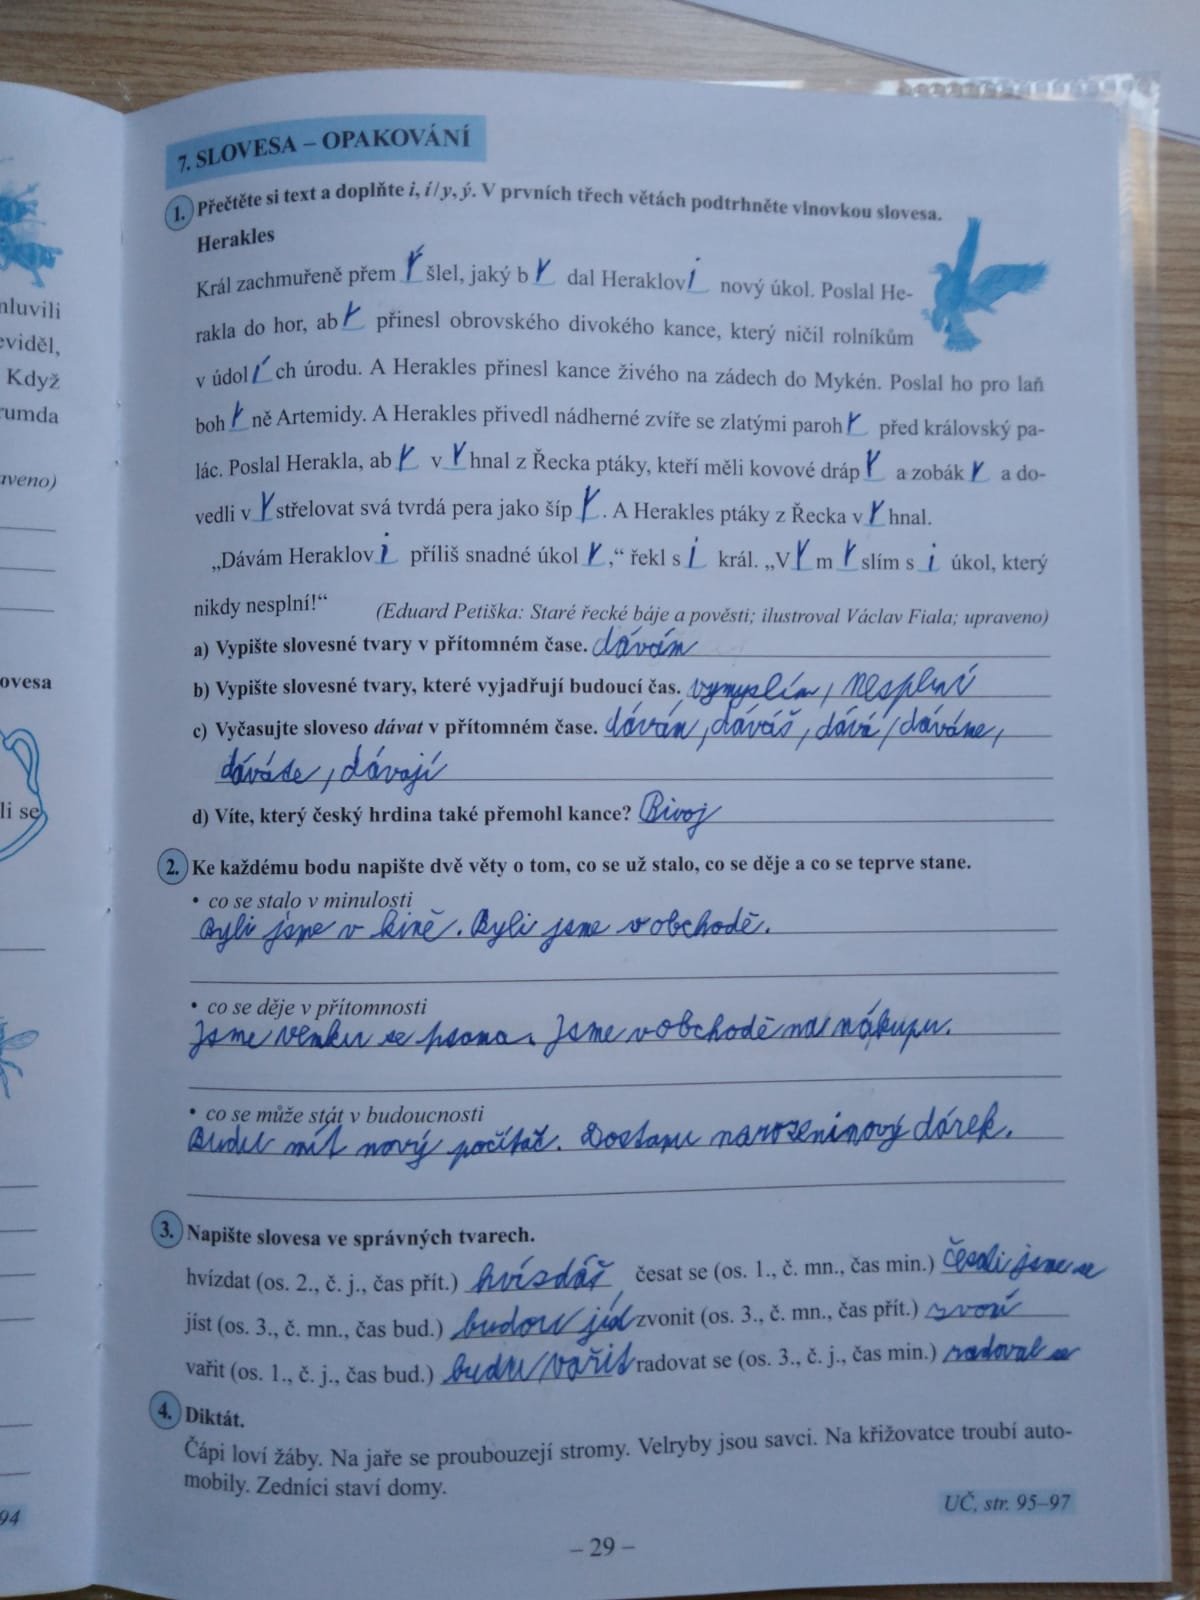 7. SLOVESA – OPAKOVÁNÍ
1. Přečtěte si text a doplňte i, í/y, ý. V prvních třech větách podtrhněte vlnovkou slovesa.
Herakles
Král zachmuřeně přemýšlel, jaký by dal Heraklovi nový úkol. Poslal He-
rakla do hor, aby přinesl obrovského divokého kance, který ničil rolníkům
v údolích úrodu. A Herakles přinesl kance živého na zádech do Mykén. Poslal ho pro laň
bohyně Artemidy. A Herakles přivedl nádherné zvíře se zlatými parohy před královský pa-
lác. Poslal Herakla, aby vyhnal z Řecka ptáky, kteří měli kovové drápy a zobáky a do-
vedli vystřelovat svá tvrdá pera jako šípy. A Herakles ptáky z Řecka vyhnal.
„Dávám Heraklovi příliš snadné úkoly,“ řekl si král. „Vymyslím si úkol, který
nikdy nesplní!“ (Eduard Petiška: Staré řecké báje a pověsti; ilustroval Václav Fiala; upraveno)
a) Vypište slovesné tvary v přítomném čase. dávám
b) Vypište slovesné tvary, které vyjadřují budoucí čas. vymyslím, nesplní
c) Vyčasujte sloveso dávat v přítomném čase. dávám, dáváš, dává/dáváme,
dáváte, dávají
d) Víte, který český hrdina také přemohl kance? Bivoj
2. Ke každému bodu napište dvě věty o tom, co se už stalo, co se děje a co se teprve stane.
• co se stalo v minulosti
Byli jsme v kině. Byli jsme v obchodě.
• co se děje v přítomnosti
Jsme venku se psama. Jsme v obchodě na nákupu.
• co se může stát v budoucnosti
Budu mít nový počítač. Dostanu narozeninový dárek.
3. Napište slovesa ve správných tvarech.
hvízdat (os. 2., č. j., čas přít.) hvízdáš česat se (os. 1., č. mn., čas min.) česali jsme se
jíst (os. 3., č. mn., čas bud.) budou jíst zvonit (os. 3., č. mn., čas přít.) zvoní
vařit (os. 1., č. j., čas bud.) budu vařit radovat se (os. 3., č. j., čas min.) radoval se
4. Diktát.
Čápi loví žáby. Na jaře se proubouzejí stromy. Velryby jsou savci. Na křižovatce troubí auto-
mobily. Zedníci staví domy.
UČ, str. 95–97
– 29 –
mluvili
eviděl,
Když
rumda
aveno)
ovesa
li se
94